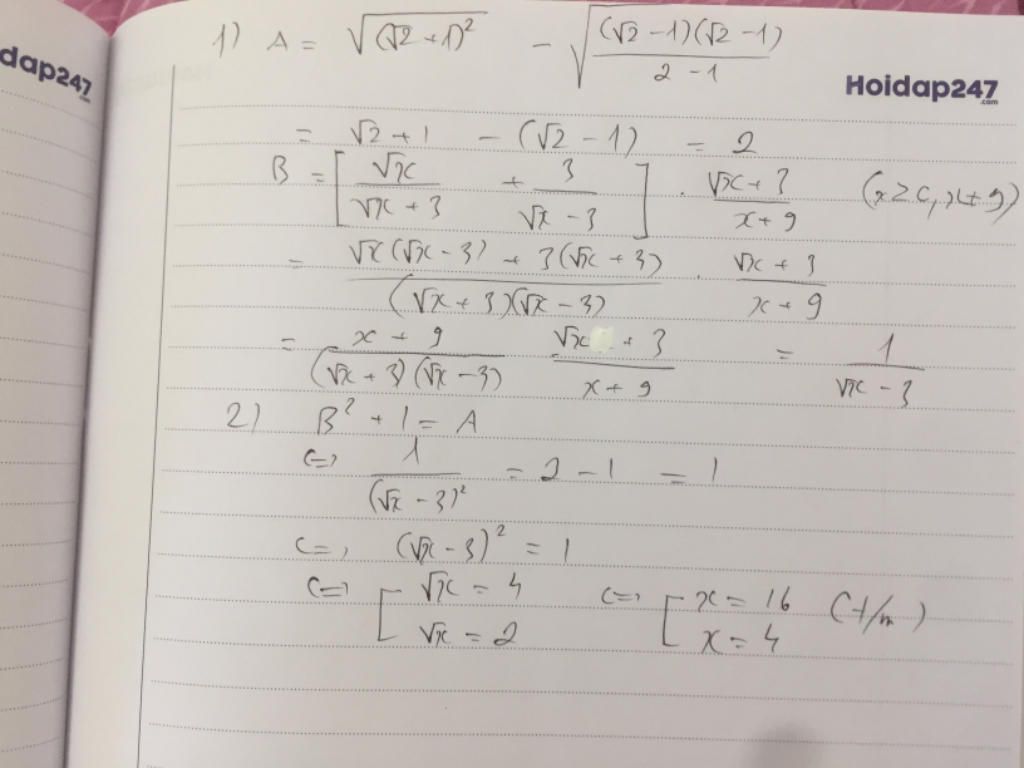 dap247
.com
Hoidap247
.com
1) A = √(√2 + 1)² - √((√2 - 1)(√2 - 1) / (2 - 1))
= √2 + 1 - (√2 - 1) = 2
B = [√x / (√x + 3) + 3 / (√x - 3)] . (√x + 3) / (x + 9) (x ≥ 0, x ≠ 9)
= (√x(√x - 3) + 3(√x + 3)) / ((√x + 3)(√x - 3)) . (√x + 3) / (x + 9)
= (x + 9) / ((√x + 3)(√x - 3)) (√x + 3) / (x + 9) = 1 / (√x - 3)
2) B² + 1 = A
<=> 1 / (√x - 3)² = 2 - 1 = 1
<=> (√x - 3)² = 1
<=> [ √x = 4 <=> [ x = 16 (t/m)
√x = 2 x = 4